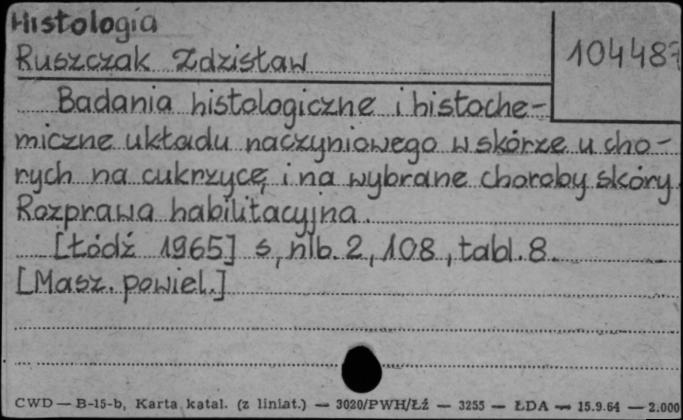 Histologia
Ruszczak Zdzisław
104487
Badania histologiczne i histoche-
miczne układu naczyniowego w skórze u cho-
rych na cukrzycę i na wybrane choroby skóry.
Rozprawa habilitacyjna.
[Łódź 1965] s, nlb. 2, 108, tabl. 8.
[Masz. powiel.]
CWD — B-15-b, Karta katal. (z liniat.) — 3020/PWH/Łź — 3255 — ŁDA — 15.9.64 — 2.000